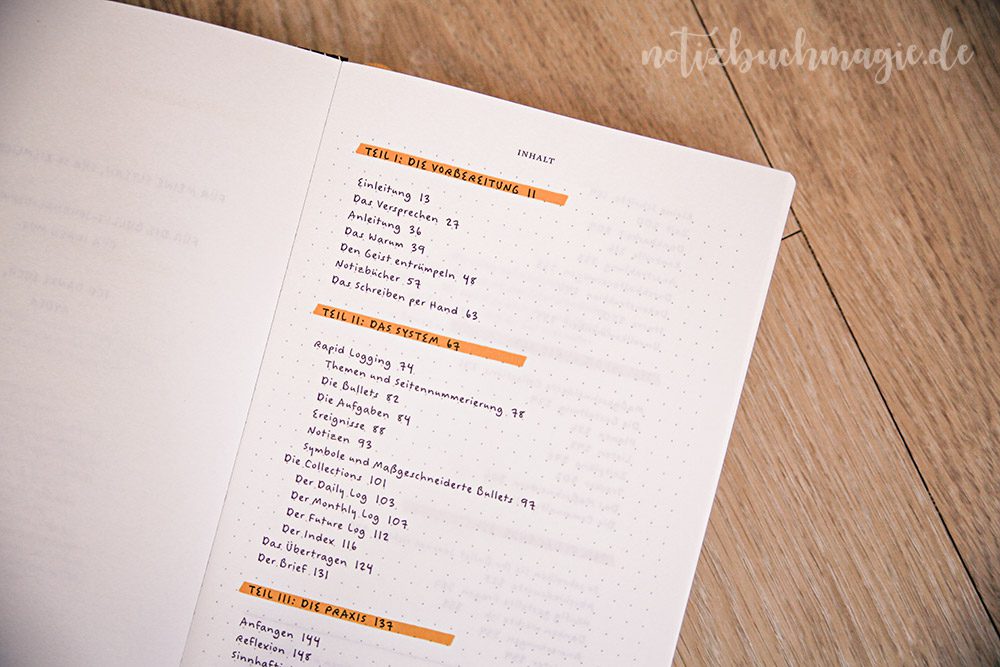 notizbuchmagie.de
INHALT
TEIL I: DIE VORBEREITUNG 11
Einleitung 13
Das Versprechen 27
Anleitung 36
Das Warum 39
Den Geist entrümpeln 48
Notizbücher 57
Das Schreiben per Hand 63
TEIL II: DAS SYSTEM 67
Rapid Logging 74
Themen und Seitennummerierung 78
Die Bullets 82
Die Aufgaben 84
Ereignisse 88
Notizen 93
Symbole und Maßgeschneiderte Bullets 97
Die Collections 101
Der Daily Log 103
Der Monthly Log 107
Der Future Log 112
Der Index 116
Das Übertragen 124
Der Brief 131
TEIL III: DIE PRAXIS 137
Anfangen 144
Reflexion 148